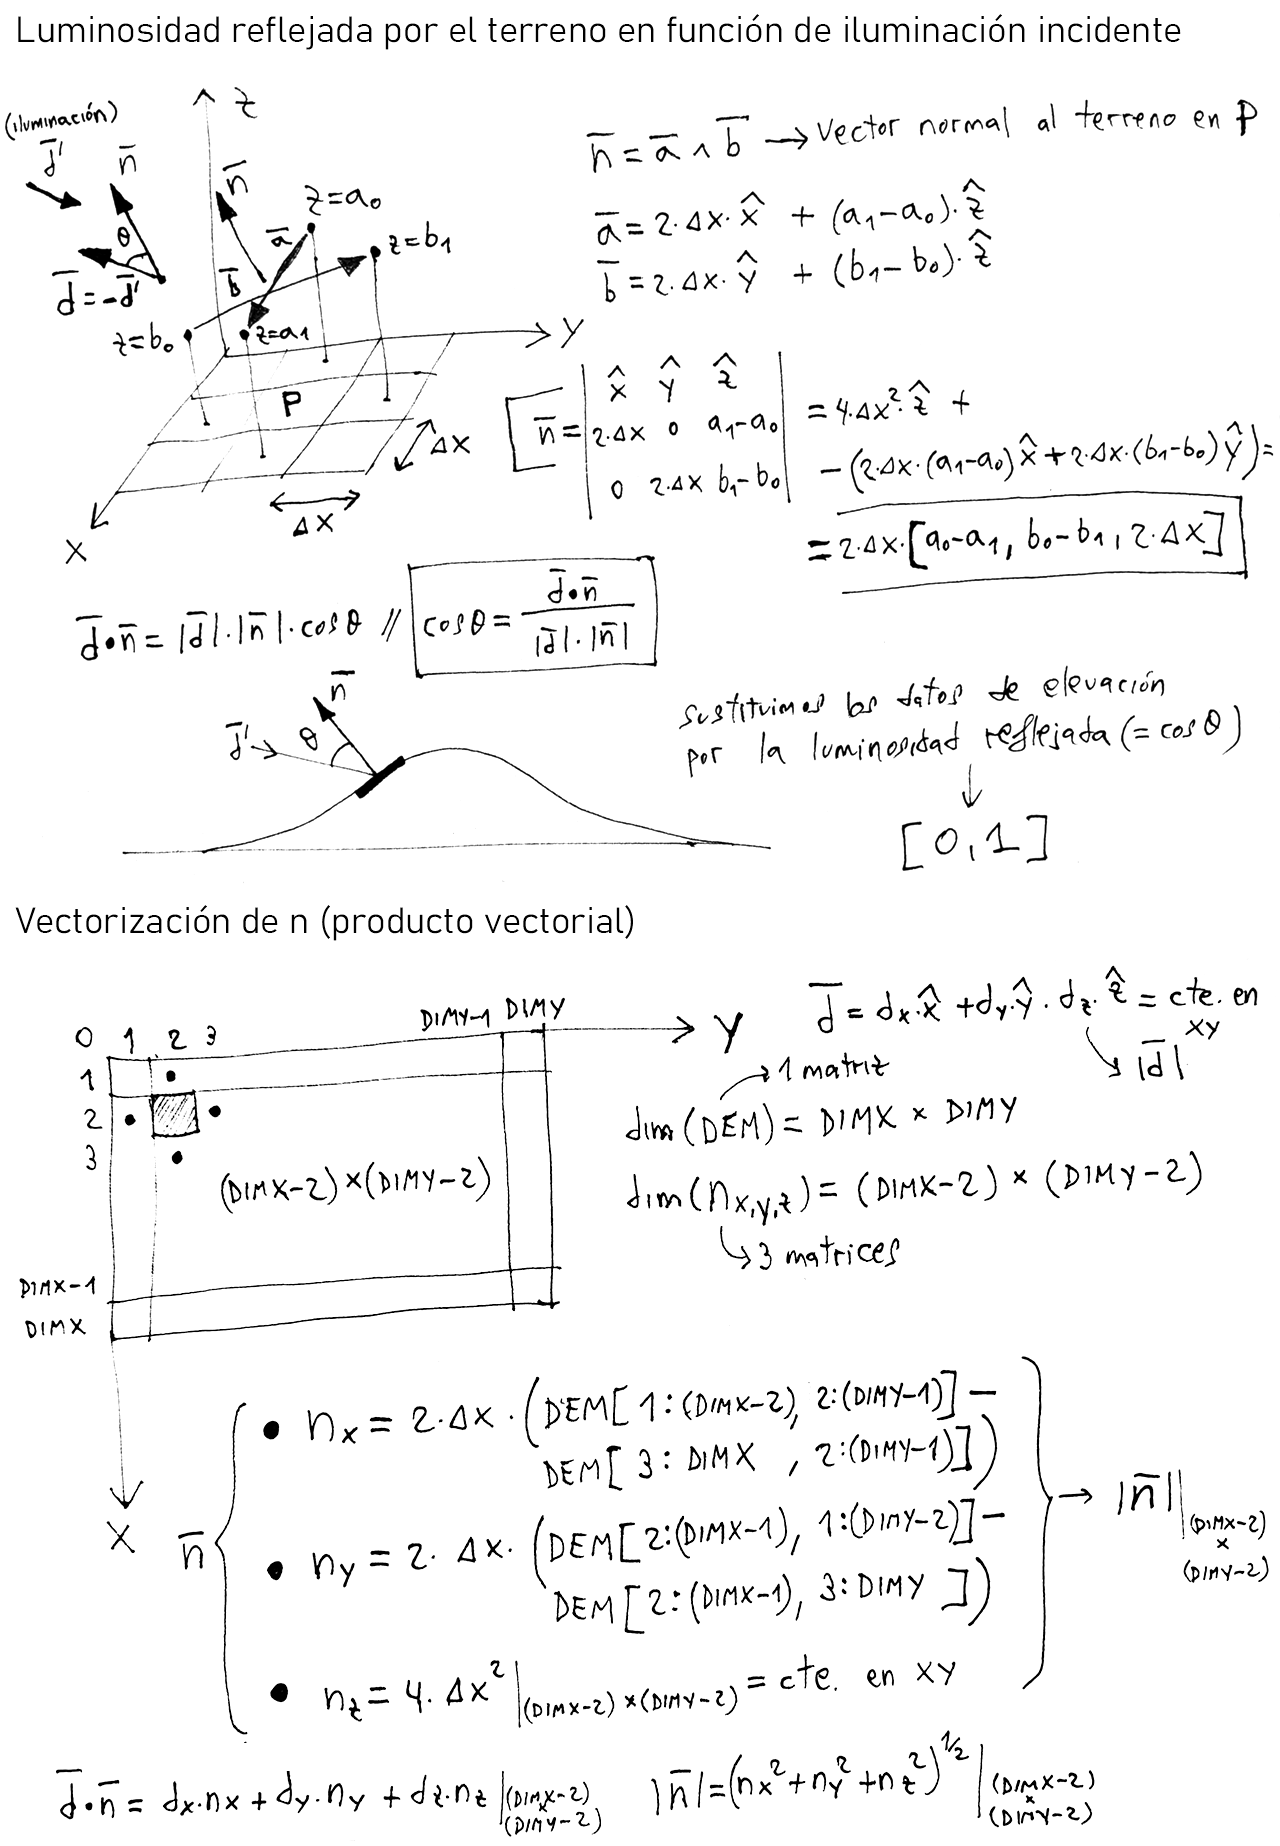 Luminosidad reflejada por el terreno en función de iluminación incidente
(iluminación)
d̅'
n̅
θ
d̅=-d̅'
z
n̅
z=a₀
a̅
z=b₁
b̅
z=b₀
z=a₁
y
P
Δx
Δx
x
n̅ = a̅ ∧ b̅ → Vector normal al terreno en P
a̅ = 2·Δx·x̂ + (a₁-a₀)·ẑ
b̅ = 2·Δx·ŷ + (b₁-b₀)·ẑ
n̅ = | x̂ ŷ ẑ |
| 2·Δx 0 a₁-a₀ | = 4·Δx²·ẑ +
| 0 2·Δx b₁-b₀ | -(2·Δx·(a₁-a₀)x̂+2·Δx·(b₁-b₀)ŷ)=
= 2·Δx·[a₀-a₁, b₀-b₁, 2·Δx]
d̅•n̅ = |d̅|·|n̅|·cosθ // cosθ = d̅•n̅ / |d̅|·|n̅|
n̅
d̅'
θ
sustituimos los datos de elevación
por la luminosidad reflejada (= cosθ)
↓
[0,1]
Vectorización de n (producto vectorial)
0 1 2 3 DIMY-1 DIMY
Y
1
2
3
(DIMX-2)×(DIMY-2)
DIMX-1
DIMX
X
d̅ = dx·x̂ +dy·ŷ · dz·ẑ = cte. en
XY
|d̅|
→ 1 matriz
dim (DEM) = DIMX × DIMY
dim (nx,y,z) = (DIMX-2) × (DIMY-2)
↳ 3 matrices
n̅
• nx = 2·Δx·(DEM[1:(DIMX-2), 2:(DIMY-1)] -
DEM[3: DIMX , 2:(DIMY-1)])
• ny = 2·Δx·(DEM[2:(DIMX-1), 1:(DIMY-2)] -
DEM[2:(DIMX-1), 3:DIMY ])
• nz = 4·Δx² |(DIMX-2)×(DIMY-2) = cte. en XY
→ |n̅| |(DIMX-2)
×
(DIMY-2)
d̅•n̅ = dx·nx + dy·ny + dz·nz |(DIMX-2)
×
(DIMY-2)
|n̅|=(nx²+ny²+nz²)^1/2 |(DIMX-2)
×
(DIMY-2)